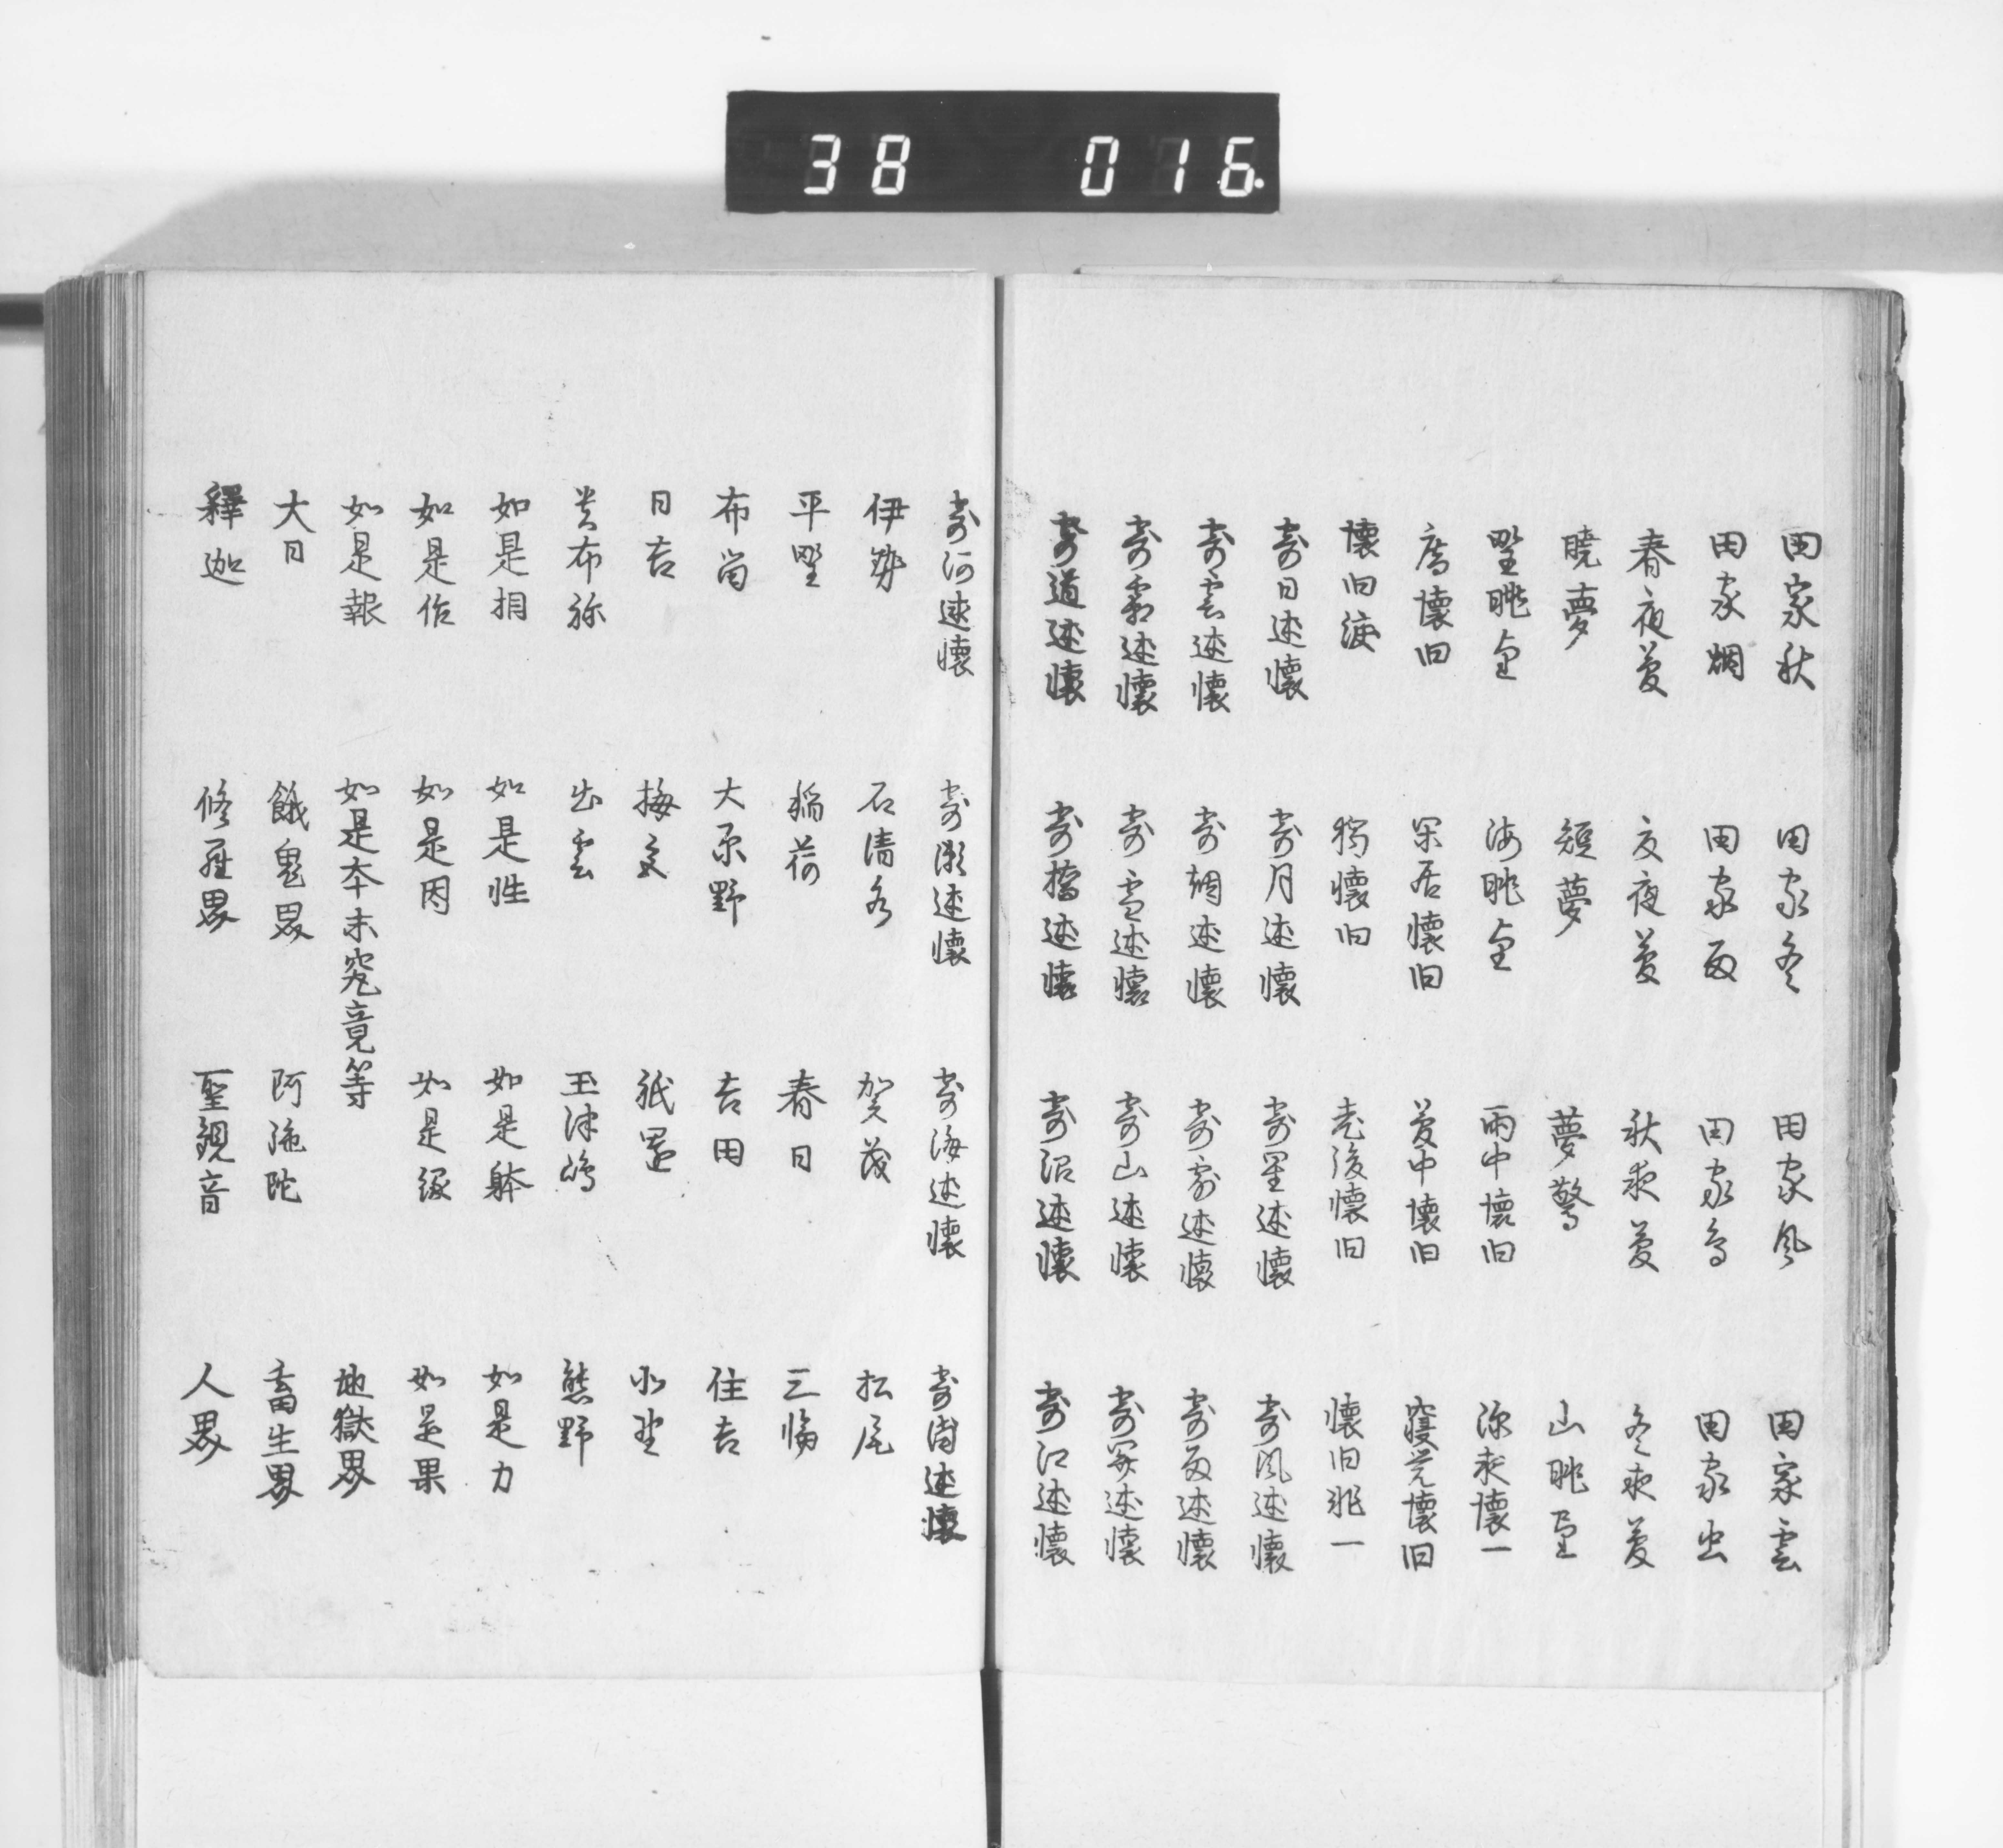 38 016
田家秋 田家冬 田家風 田家雲
田家烟 田家雨 田家鳥 田家虫
春夜夢 夏夜夢 秋夜夢 冬夜夢
曉夢 短夢 夢驚 山眺望
野眺望 海眺望 雨中懐旧 深夜懐一
懐旧 閑居懐旧 夢中懐旧 寝覚懐旧
懐旧涙 独懐旧 老後懐旧 懐旧非一
寄日述懐 寄月述懐 寄星述懐 寄風述懐
寄雲述懐 寄烟述懐 寄露述懐 寄雨述懐
寄霜述懐 寄雪述懐 寄山述懐 寄関述懐
寄道述懐 寄橋述懐 寄沼述懐 寄江述懐
寄河述懐 寄瀬述懐 寄海述懐 寄浦述懐
伊勢 石清水 賀茂 松尾
平野 稲荷 春日 三輪
布留 大原野 吉田 住吉
日吉 梅宮 祇園 北野
貴布祢 出雲 玉津嶋 熊野
如是相 如是性 如是躰 如是力
如是作 如是因 如是縁 如是果
如是報 如是本末究竟等 地獄界
大日 餓鬼界 阿弥陀 畜生界
釋迦 修羅界 聖観音 人界